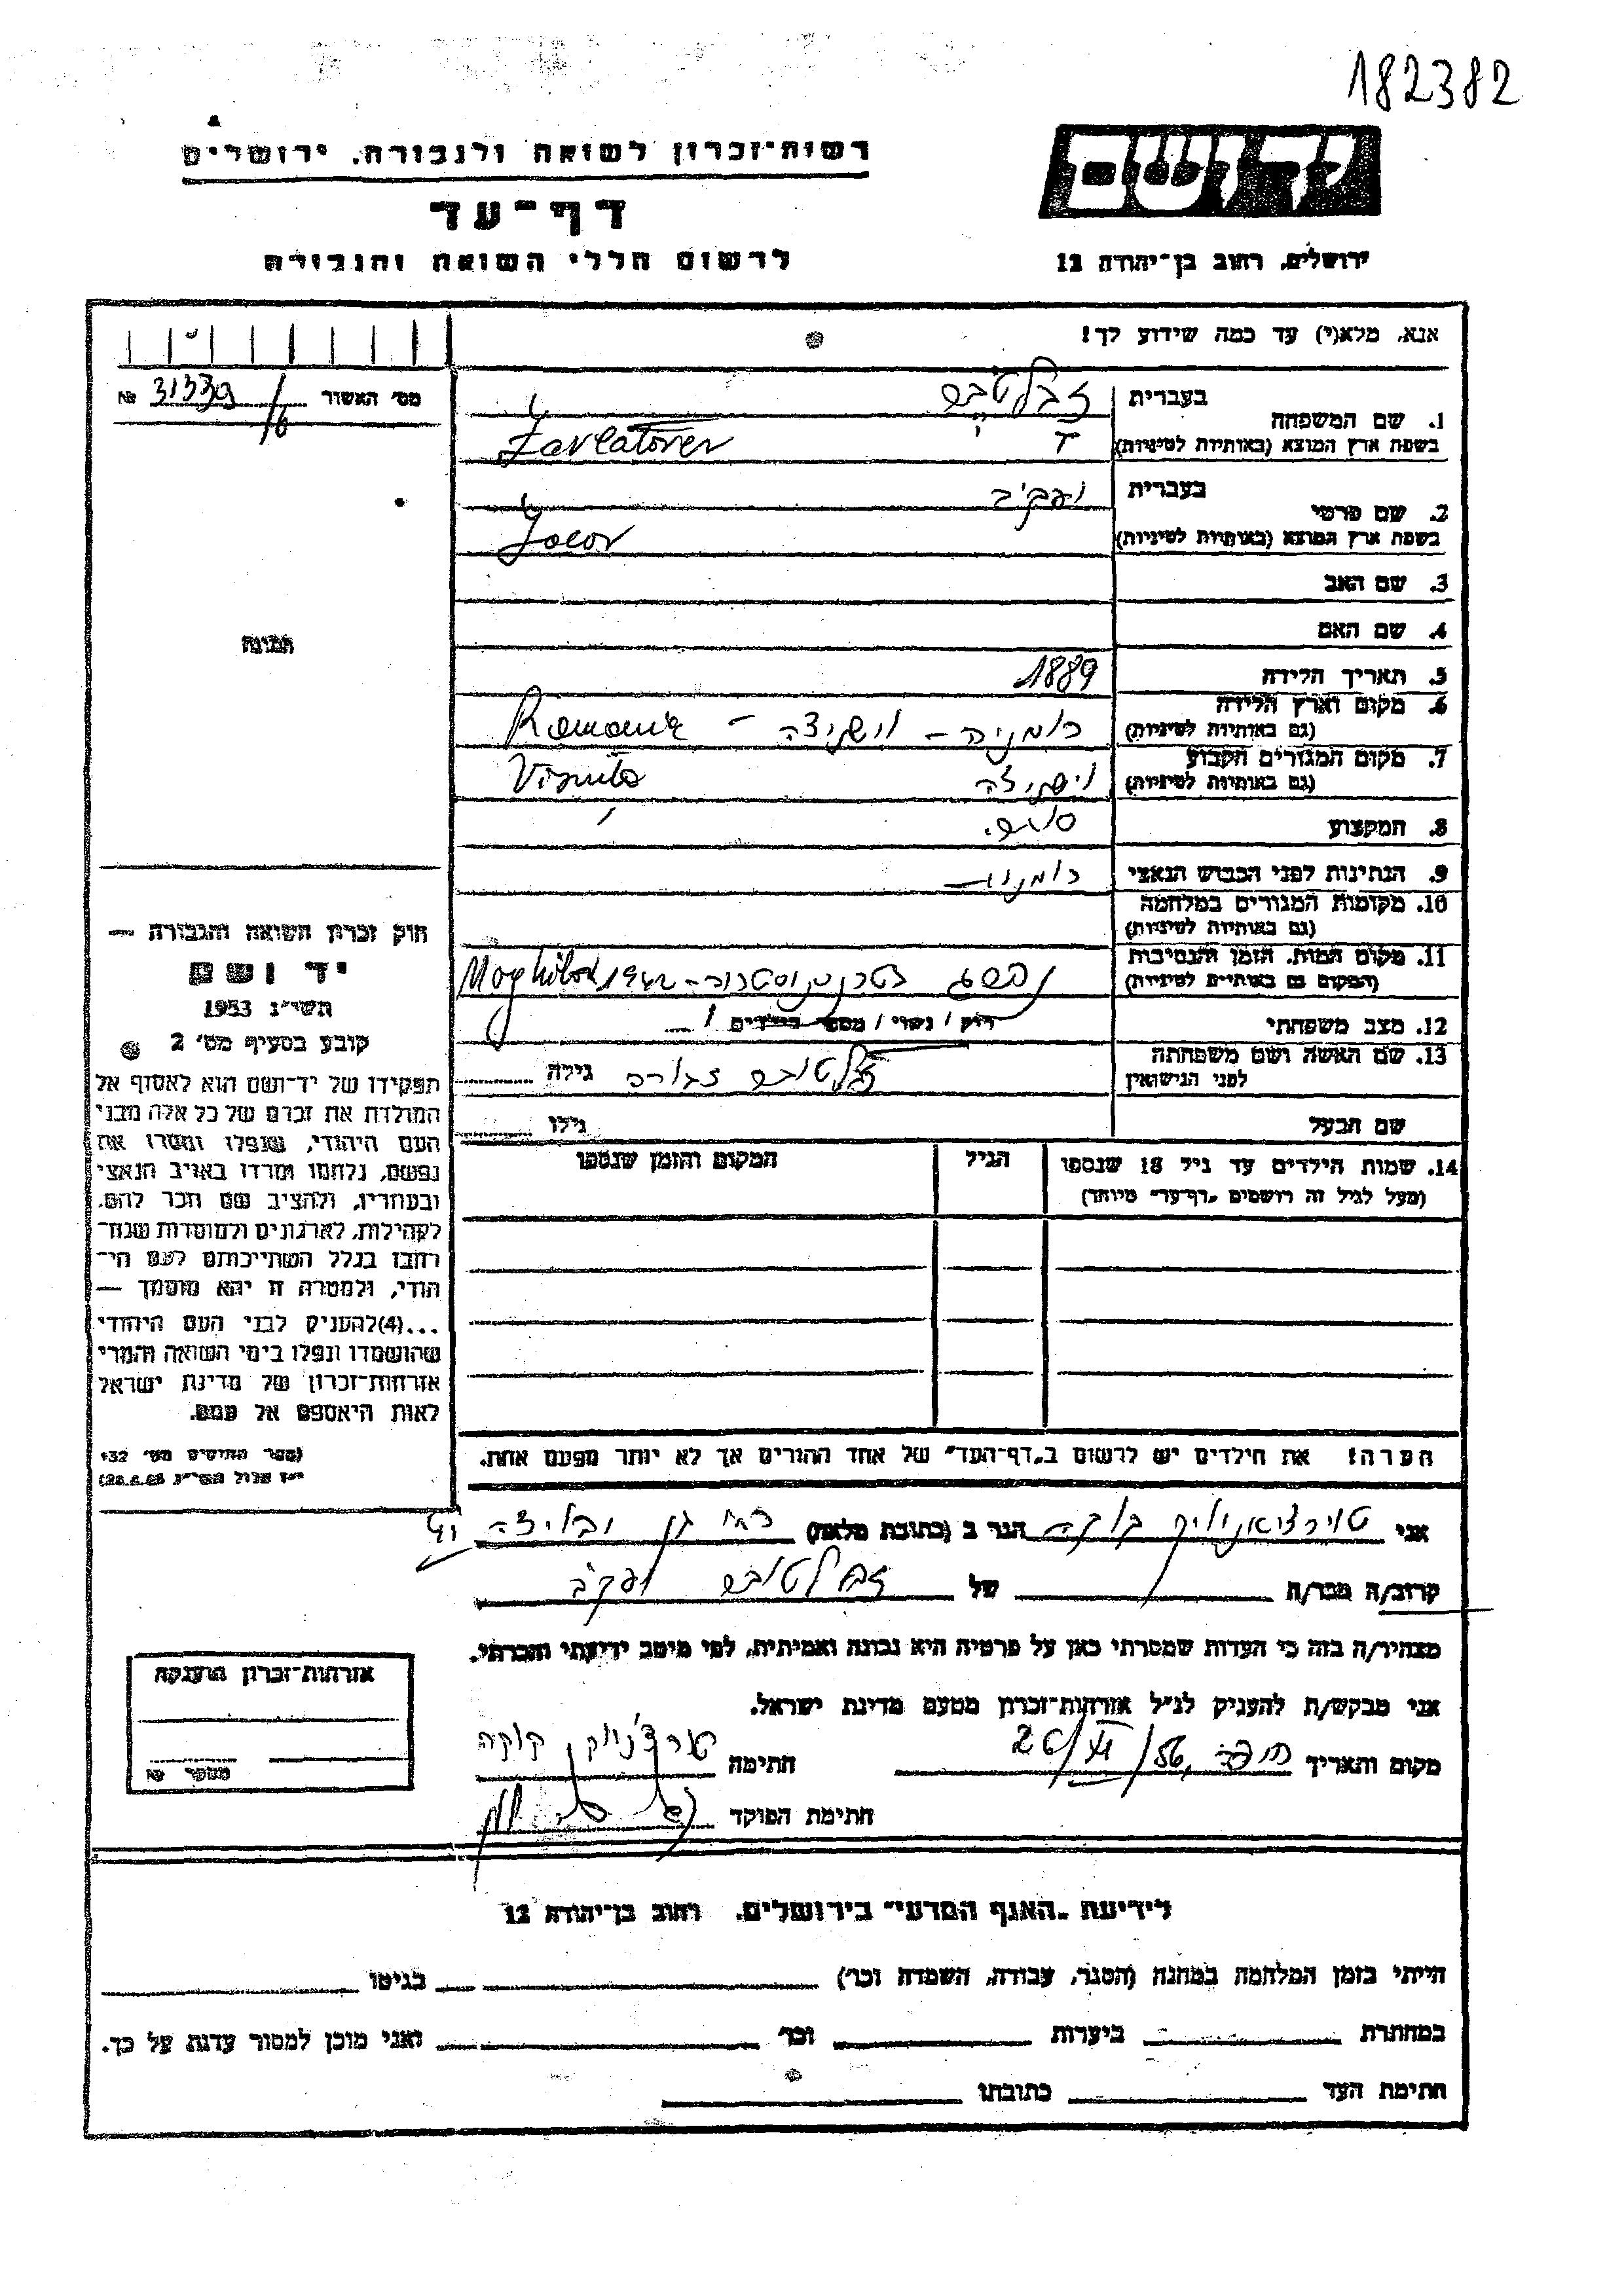 182382
יד ושם
רשות-זכרון לשואה ולגבורה. ירושלים
דף-עד
ירושלים, רחוב בן-יהודה 12
לרשום חללי השואה והגבורה
אנא, מלא(י) עד כמה שידוע לך!
מס׳ האשור № 31339/6
1. שם המשפחה
בעברית
בשפת ארץ המוצא (באותיות לטיניות)
Zavlatover
2. שם פרטי
בעברית יעקב
בשפת ארץ המוצא (באותיות לטיניות)
Jacov
3. שם האב
4. שם האם
5. תאריך הלידה 1889
6. מקום וארץ הלידה
(גם באותיות לטיניות)
רומניה - וישניצה - Romania
7. מקום המגורים הקבוע
(גם באותיות לטיניות)
וישניצה Visnita
8. המקצוע סוחר.
9. הנתינות לפני הכבוש הנאצי רומנית
10. מקומות המגורים במלחמה
(גם באותיות לטיניות)
11. מקום המות. הזמן והנסיבות
(המקום גם באותיות לטיניות)
בטרנסניסטריה - 1942
12. מצב משפחתי רוק / נשוי / מספר הילדים
13. שם האשה ושם משפחתה
לפני הנישואין
גילה
שם הבעל גילו
14. שמות הילדים עד גיל 18 שנספו
(מעל לגיל זה רושמים „דף-עד״ מיוחד)
הגיל
המקום והזמן שנספו
הערה! את הילדים יש לרשום ב„דף-העד״ של אחד ההורים אך לא יותר מפעם אחת.
תמונה
חוק זכרון השואה והגבורה —
יד ושם
תשי״ג 1953
קובע בסעיף מס׳ 2
תפקידו של יד-ושם הוא לאסוף אל
המולדת את זכרם של כל אלה מבני
העם היהודי, שנפלו ומסרו את
נפשם, נלחמו ומרדו באויב הנאצי
ובעוזריו, ולהציב שם וזכר להם,
לקהילות, לארגונים ולמוסדות שנח-
רבו בגלל השתייכותם לעם הי-
הודי, ולמטרה זו יהא מוסמך —
...(4)להעניק לבני העם היהודי
שהושמדו ונפלו בימי השואה והמרי
אזרחות-זכרון של מדינת ישראל
לאות היאספם אל עמם.
(ספר החוקים מס׳ 132
אני הגר ב (כתובת מלאה) רמת גן
קרוב/ה מכר/ה של יעקב
מצהיר/ה בזה כי העדות שמסרתי כאן על פרטיה היא נכונה ואמיתית, לפי מיטב ידיעתי והכרתי.
אני מבקש/ת להעניק לנ״ל אזרחות-זכרון מטעם מדינת ישראל.
מקום ותאריך חיפה, 26/VI/56 חתימה
חתימת הפוקד
אזרחות-זכרון הוענקה
מספר №
לידיעת „האגף המדעי״ בירושלים. רחוב בן-יהודה 12
הייתי בזמן המלחמה במחנה (הסגר, עבודה, השמדה וכו׳) בגיטו
במחתרת ביערות וכו׳ ואני מוכן למסור עדות על כך.
חתימת העד כתובתו